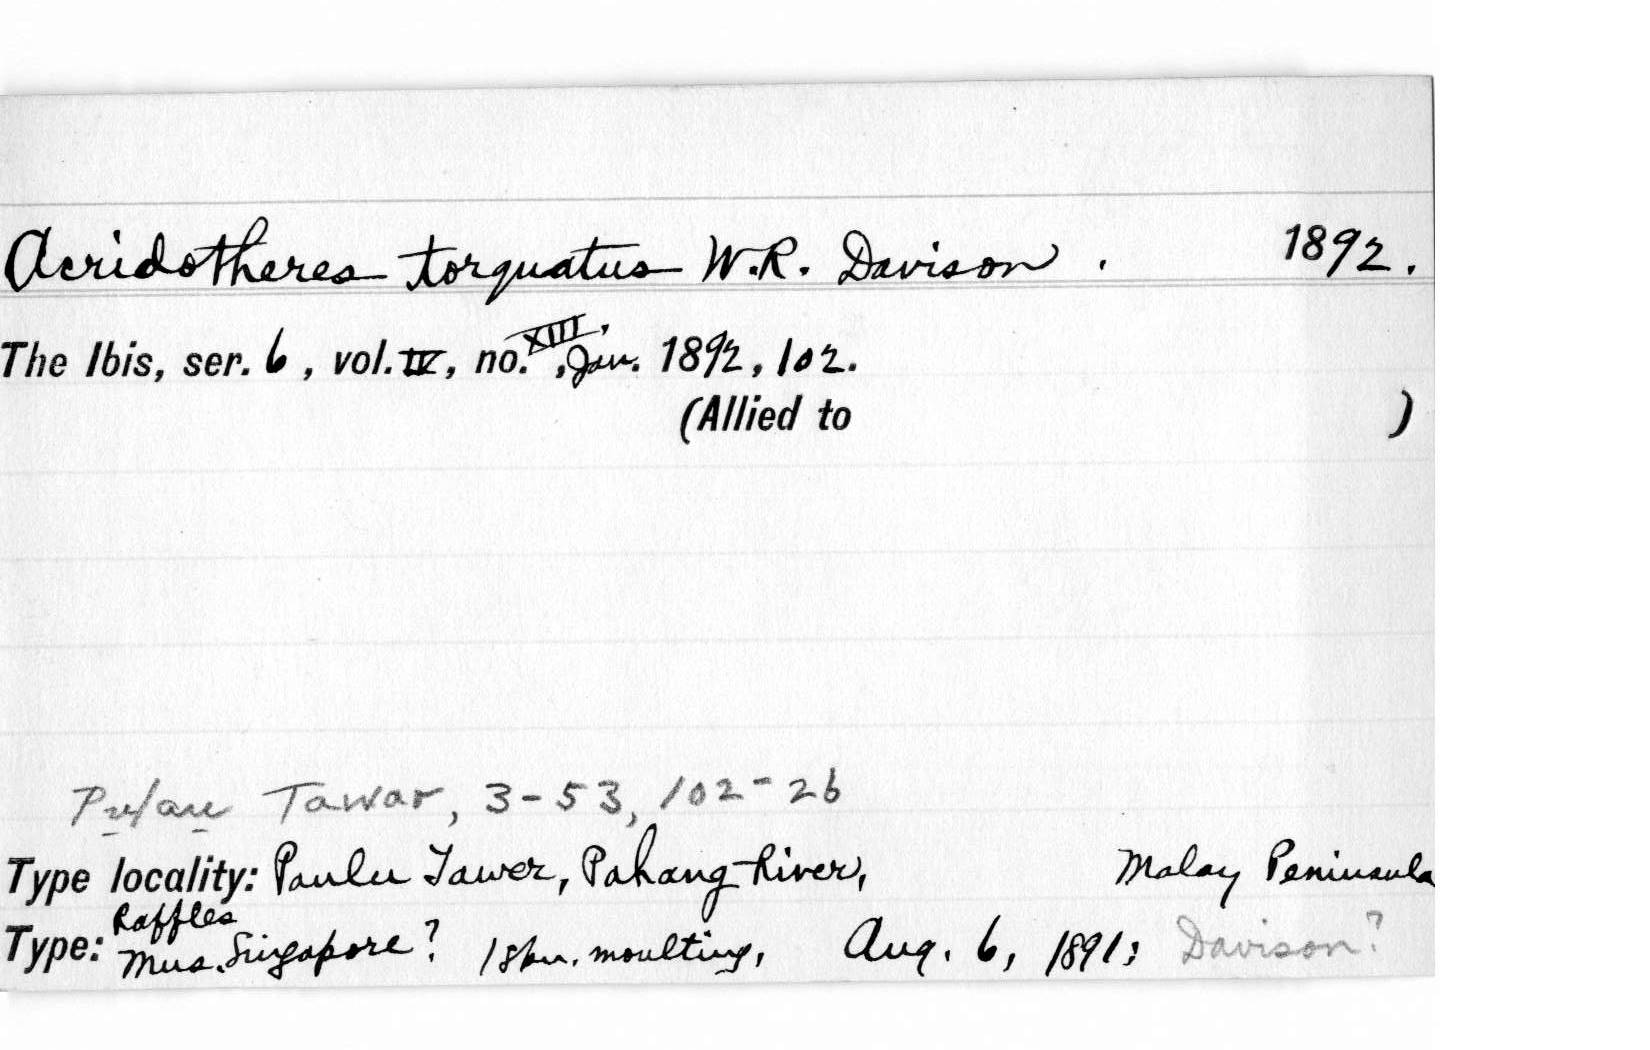 Acridotheres torquatus W.R. Davison. 1892.
The Ibis, ser. 6, vol. IV, no. XIII, Jan. 1892, 102.
(Allied to )
Tawar, 3-53, 102-26
Type locality: Paulu Tawer, Pahang River, Malay Peninsula
Raffles
Type: Mus. Singapore? moulting, Aug. 6, 1891; Davison?